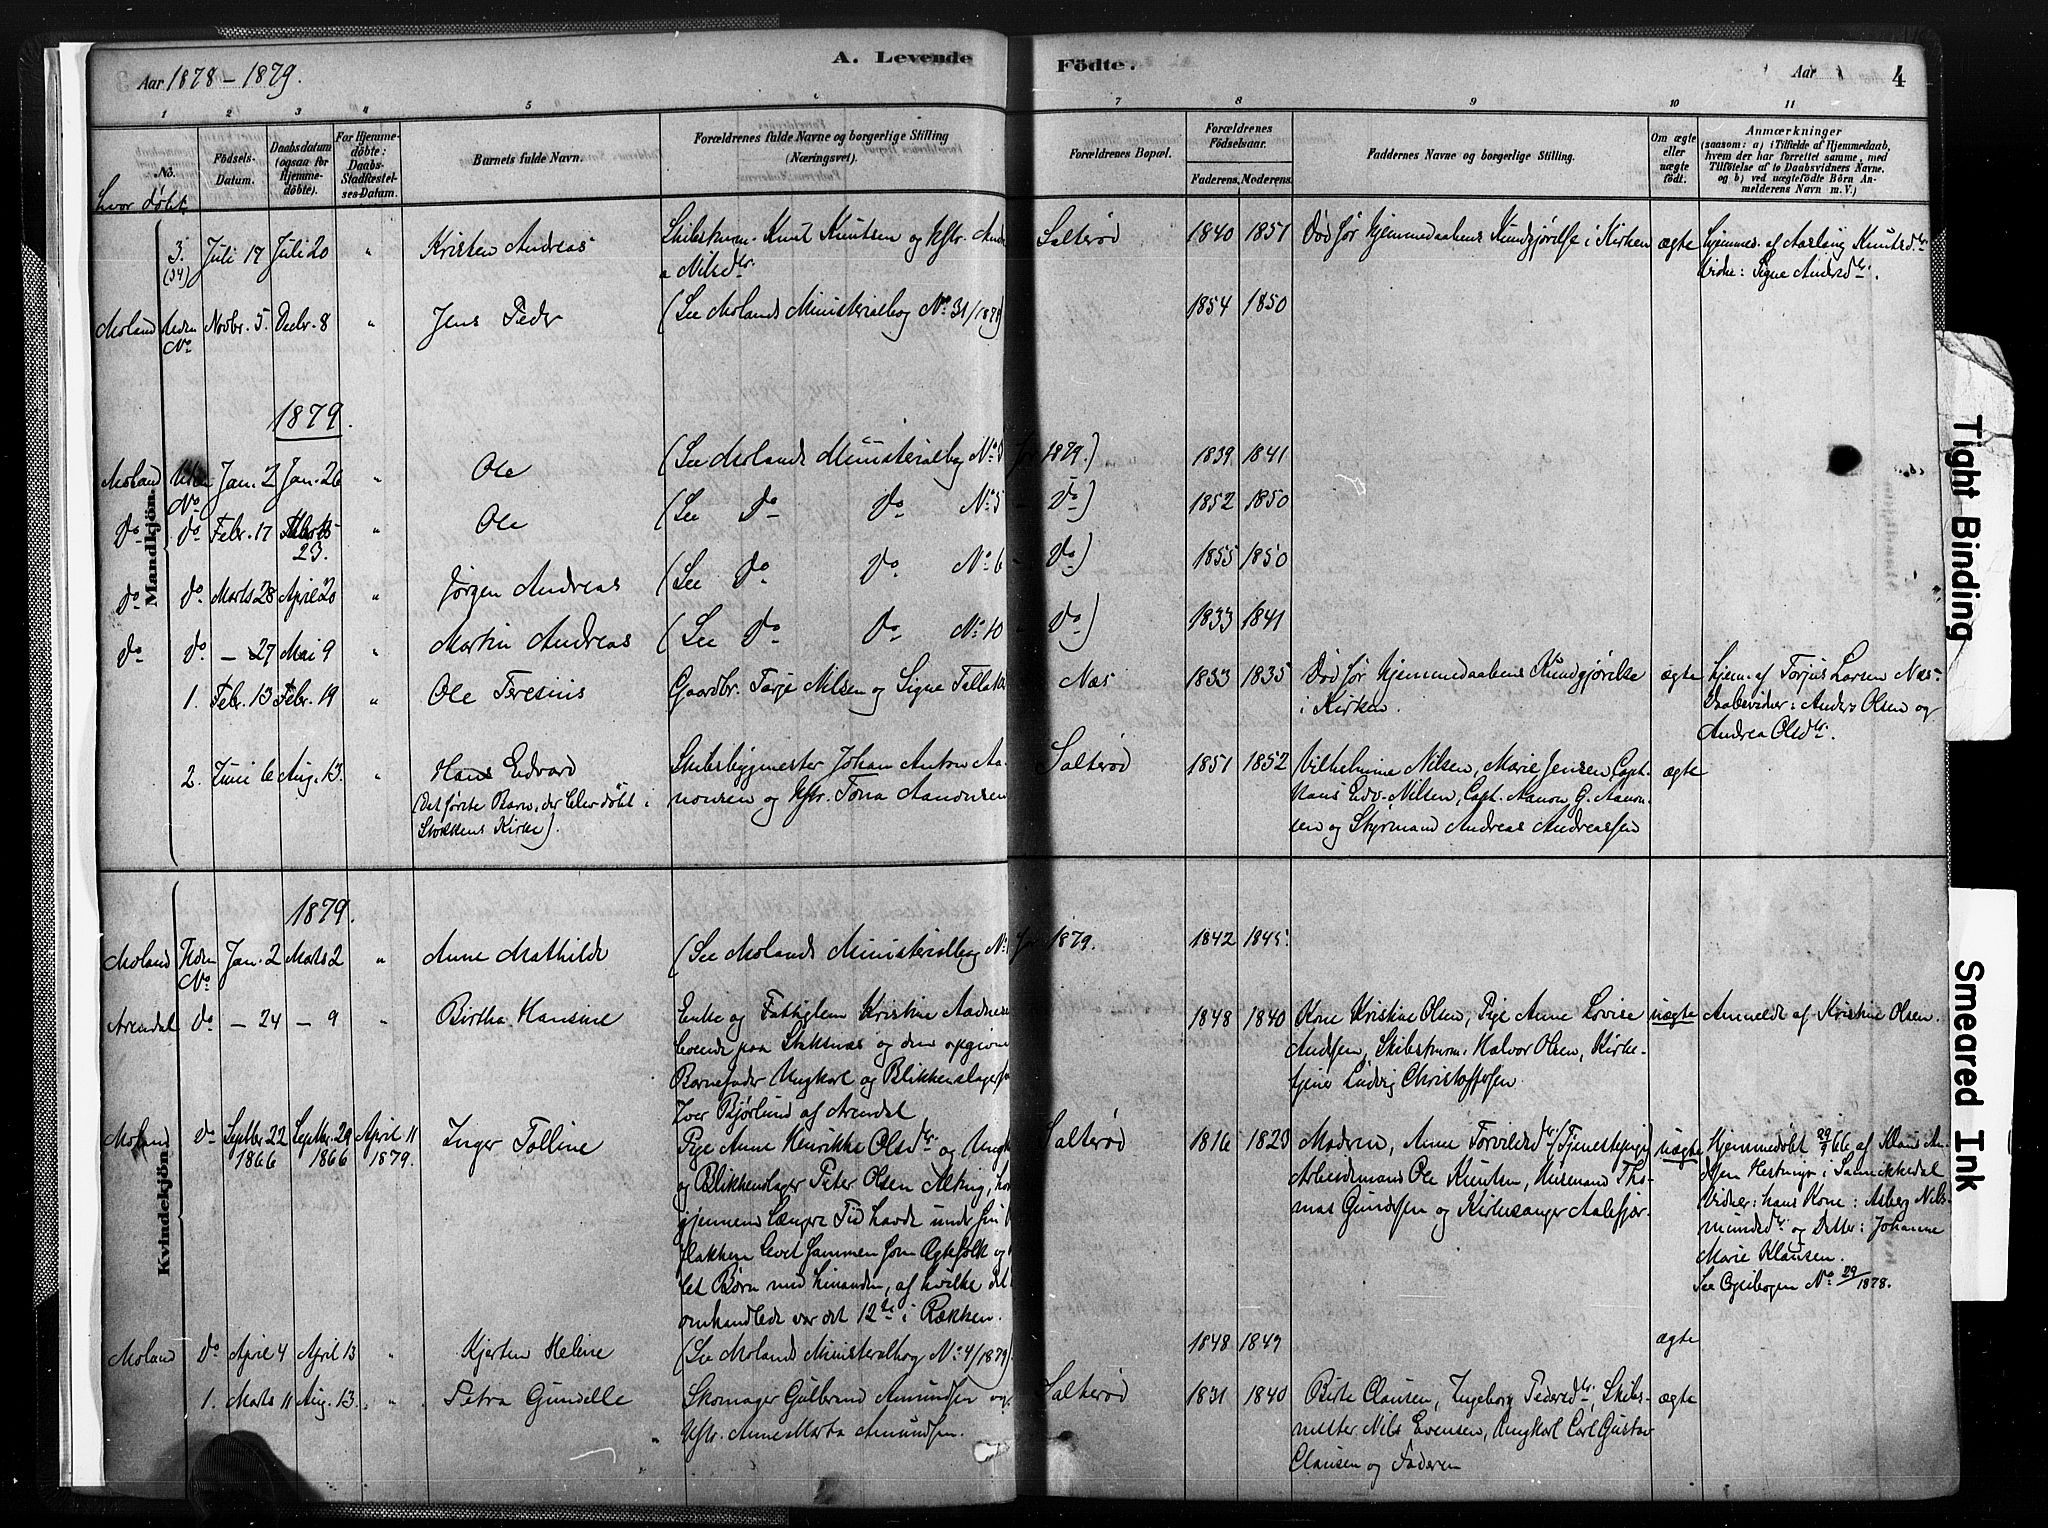 Aar 1878-1879.
A. Levende Födte.
Aar
4
1 2 3 4 5 6 7 8 9 10 11
No.
hvor döbt.
Födsels-Datum.
Daabsdatum (ogsaa for Hjemme-döbte).
For Hjemme-döbte: Daabs-Stadfæstel-ses-Datum.
Barnets fulde Navn.
Forældrenes fulde Navne og borgerlige Stilling (Næringsvei).
Forældrenes Bopæl.
Forældrenes Födselsaar.
Faderens. Moderens.
Faddernes Navne og borgerlige Stilling.
Om ægte eller uægte födt.
Anmærkninger
(saasom: a) i Tilfælde af Hjemmedaab, hvem der har forrettet samme, med Tilföielse af to Daabsvidners Navne. og b) ved uægtefödte Börn Anmelderens Navn m. V.)
Mandkjön.
3. (34) Juli 17 Juli 20 " Kristen Andreas Skibstmm. Knut Knutsen og Hstr. Andrea Nilsdtr. Salteröd 1840 1851 Död för Hjemmedaabens Kundgjörelse i Kirken ægte Hjemmed. af Aaslaug Knutsdtr. Vidne: Signe Andrsdtr.
Moland Uden No Novbr. 5. Decbr. 8 " Jens Peder (See Molands Ministerialbog No 31/1878) 1854 1850
1879.
Moland Uden No Jan. 2 Jan. 26 " Ole (See Molands Ministerialbog No for 1879.) 1839 1841
Do Do Febr. 17 23. " Ole (See Do Do No 5 - Do) 1852 1850
Do Do Marts 28 April 20 " Jörgen Andreas (See Do Do No 6 - Do) 1855 1850
Do Do - 27 Mai 9 " Martin Andreas (See Do Do No 10 Do) 1833 1841
1. Febr. 13 Febr. 19 " Ole Teresius Gaardbr. Tarje Nilsen og Signe Næs 1833 1835 Död för Hjemmedaabens Kundgjörelse i Kirken. ægte Hjem. af Torjus Larsen Næs. Daabsvidner: Anders Olsen og Andrea Olsdtr.
2. Juni 6 Aug. 13. " Hans Edvard (Det förste Barn, der blev döbt i Stokkens Kirke). Skibsbygmester Johan Anton Aanonsen og Hstr. Tona Aanonsen Salteröd 1851 1852 Vilhelmine Nilsen, Marie Jensen, Capt. Hans Edv. Nilsen, Capt. Aanon G. Aanonsen og Styrmand Andreas Andreassen ægte
Kvindekjön.
1879.
Moland Uden No Jan. 2 Marts 2 " Anne Mathilde (See Molands Ministerialbog No for 1879. 1842 1845.
Arendal Do - 24 - 9 " Birtha Hansine Enke og Fattiglem Kristine
boende paa og den opgivne
Barnefader Ungkarl og Blikkenslager
Iver Björlund af Arendal 1848 1840 Kone Kristine Olsen, Pige Anne Lovise
Andersen, Skibstmm. Halvor Olsen, Kirketjener Ludvig Christoffersen. uægte Anmeldt af Kristine Olsen.
Moland Do Septbr. 22 1866 Septbr. 29 1866 April 11 1879. Inger Talline Pige Anne Henrikke Olsdtr. og
og Blikkenslager Peter Olsen
gjennem længere Tid havde under
levet sammen som Ægtefolk og
Börn med hinanden, af hvilke det
omhandlede var det 12te i Rækken. Salteröd 1816 1823 Moderen, Anne Torvildsdtr. (Tjenestepige)
Arbeidsmand Ole Knutsen, Husmand Thomas Gundersen og Kirkesanger uægte Hjemmedöbt 29/9 66 af Klaus
i
Vidner: hans Kone:
og Datter: Johanne
Marie Klausen.
See Copibogen No 29/1878.
Moland Do April 4 April 13 " Kjersten Heline (See Molands Ministerialbog No 4/1879). 1848 1849 ægte
1. Marts 11 Aug. 13. " Petra Gundelle Skomager Gulbrand Amundsen og
Hstr. Anne Marta Amundsen. Salteröd 1831 1840 Birte Clausen, Ingeborg Pedersdtr., Skibsmester Nils Evensen, Ungkarl Carl Gustav
Clausen og Faderen ægte
Tight Binding
Smeared Ink